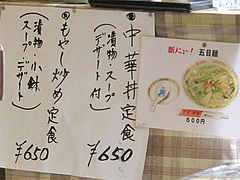 中華丼定食
(漬物 スープ
デザート付)
¥650
もやし炒め定食
(漬物 小鉢
スープ デザート)
¥650
新メニュー!
五目麺
600円